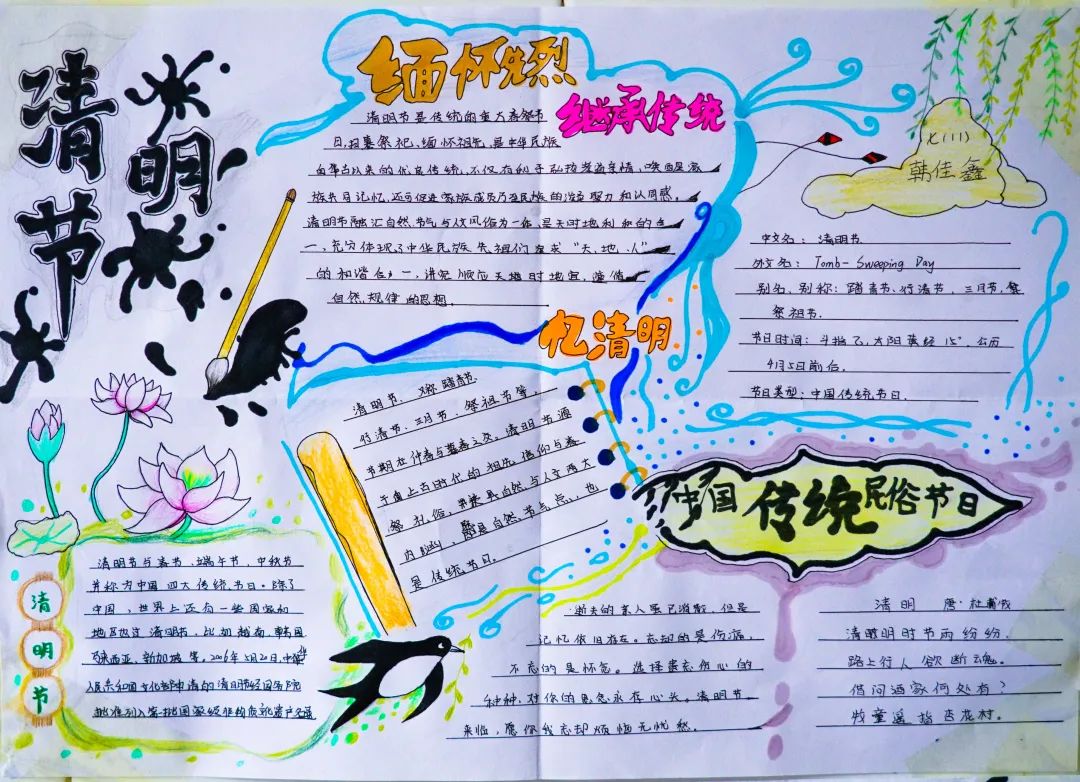 清明节
缅怀先烈
继承传统
清明节是传统的重大春祭节
日,扫墓祭祀、缅怀祖先,是中华民族
自古以来的优良传统,不仅有利于弘扬孝道亲情、唤醒家
族共同记忆,还可促进家族成员乃至民族的凝聚力和认同感。
清明节融汇自然节气与人文风俗为一体,是天时地利人和的合
一,充分体现了中华民族先祖们追求“天、地、人”
的和谐合一,讲究顺应天时地宜、遵循
自然规律的思想。
七(11)
韩佳鑫
中文名:清明节
外文名:Tomb-Sweeping Day
别名、别称:踏青节、行清节、三月节、祭
祭祖节.
节日时间:斗指乙,太阳黄经15°,公历
4月5日前后.
节日类型:中国传统节日.
忆清明
清明节,又称踏青节
行清节、三月节、祭祖节等,
节期在仲春与暮春之交。清明节源
于上古时代的祖先信仰与春
祭礼俗,兼具自然与人文两大
内涵,既是自然节气点,也
是传统节日.
中国传统民俗节日
清明节
清明节与春节、端午节、中秋节
并称为中国四大传统节日。除了
中国,世界上还有一些国家和
地区也过清明节,比如越南、韩国
马来西亚、新加坡等。2006年5月20日,中华
人民共和国文化部申请的清明节经国务院
批准列入第一批国家级非物质文化遗产名录
逝去的亲人虽已消散,但是
记忆依旧存在。忘却的是伤痛,
不忘的是怀念。选择忘伤心的
种种,对你的思念永存心头。清明节
来临,愿你我忘却烦恼无忧愁。
清明 唐·杜牧
清明时节雨纷纷.
路上行人欲断魂。
借问酒家何处有?
牧童遥指杏花村。